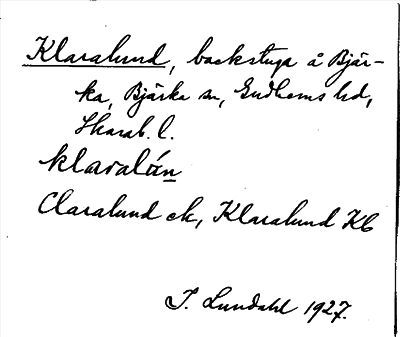 Klaralund, backstuga å Bjär-
ka, Bjärka sn, Gudhems hd,
Skarab. l.
klaralún
Claralund ek, Klaralund Kb
J. Lundahl 1927.